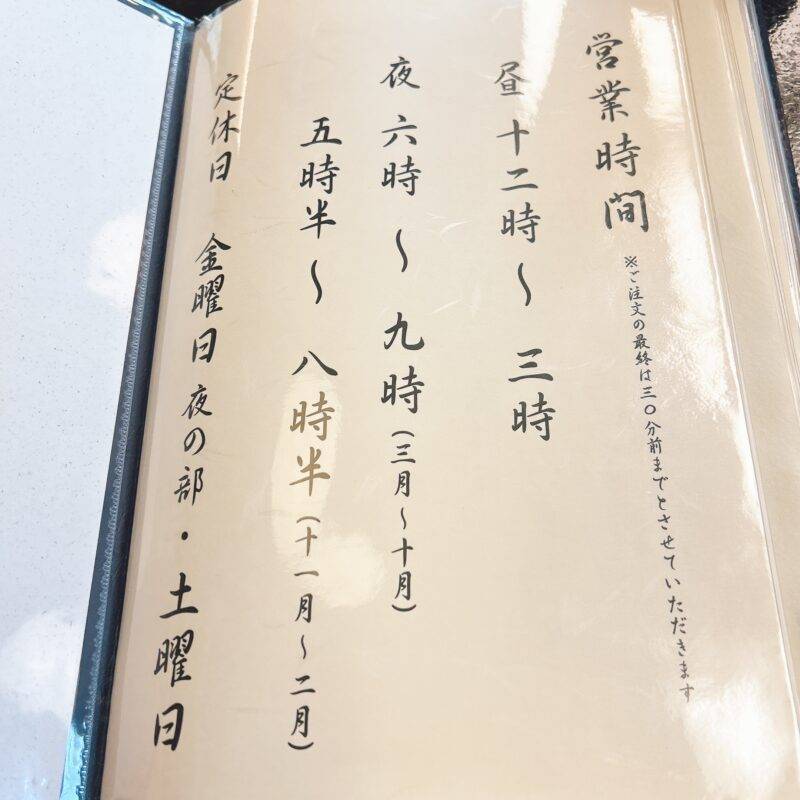 営業時間 ※ご注文の最終は三〇分前までとさせていただきます
昼 十二時〜三時
夜 六時〜九時(三月〜十月)
五時半〜八時半(十一月〜二月)
定休日 金曜日夜の部・土曜日